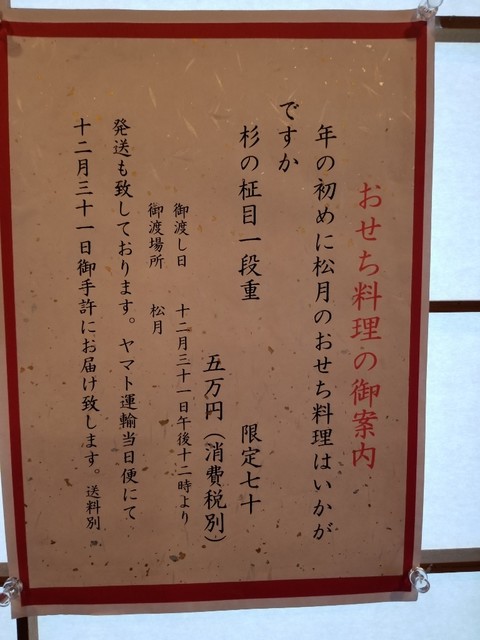 おせち料理の御案内
年の初めに松月のおせち料理はいかが
ですか
杉の柾目一段重 限定七十
五万円(消費税別)
御渡し日 十二月三十一日午後十二時より
御渡場所 松月
発送も致しております。ヤマト運輸当日便にて
十二月三十一日御手許にお届け致します。送料別